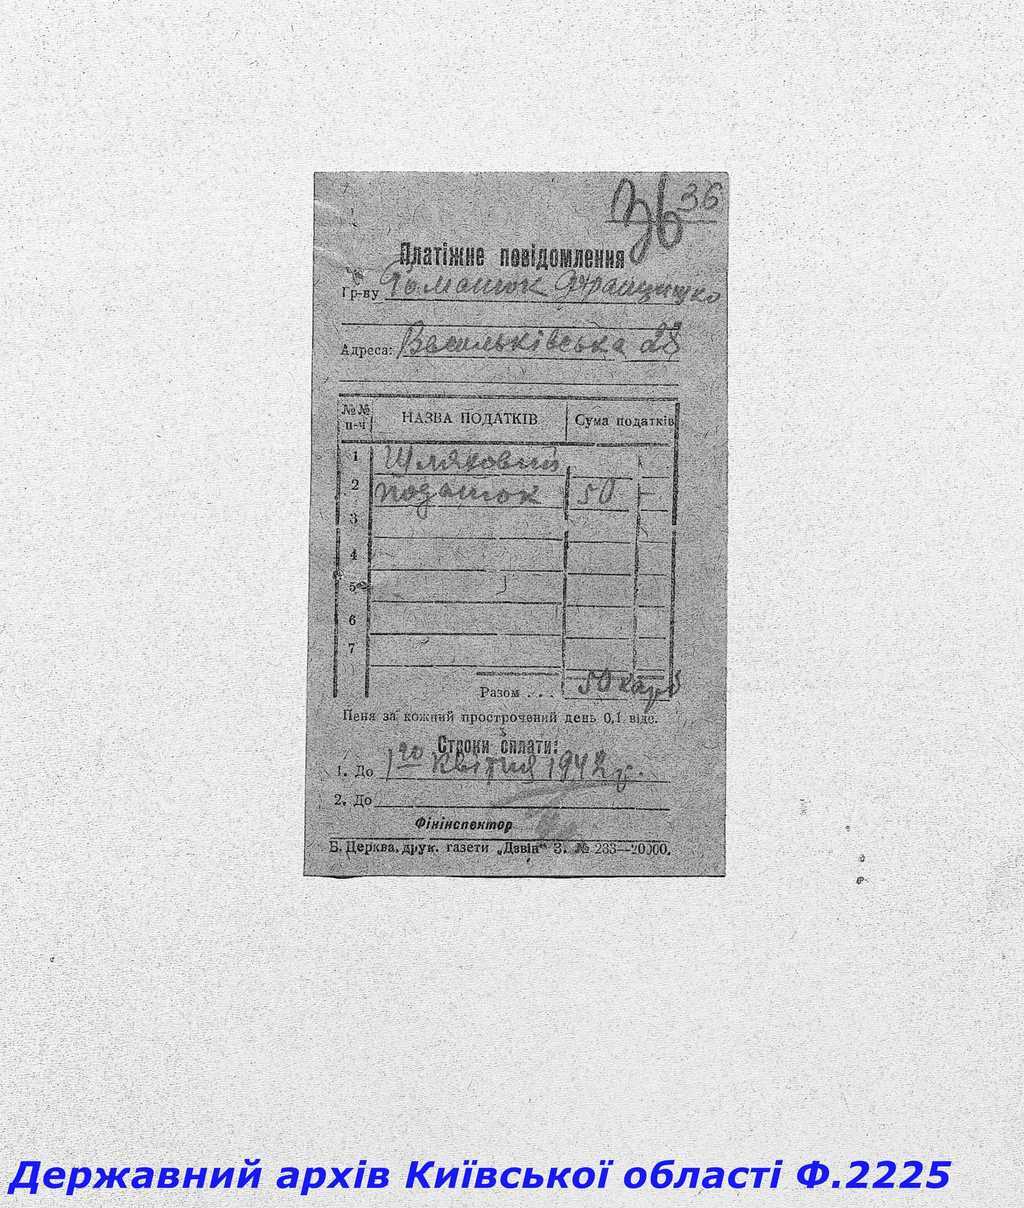 36
36
Платіжне повідомлення
Гр-ну Романюк Францишко
Адреса: Васильківська 28
№№ п-ч НАЗВА ПОДАТКІВ Сума податків
1 Шляховий
2 податок 50 —
3
4
5
6
7
Разом . . . 50 карб
Пеня за кожний прострочений день 0,1 відс.
Строки сплати:
1. До 1го квітня 1942 г.
2. До
Фінінспектор
Б. Церква, друк. газети „Дзвін“ З. № 233—20000.
Державний архів Київської області Ф.2225